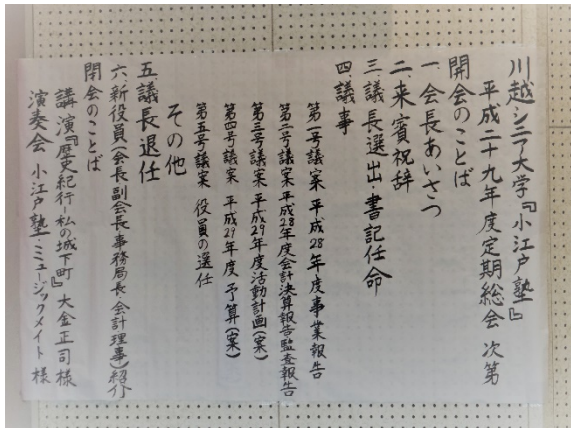 川越シニア大学『小江戸塾』
平成二十九年度定期総会 次第
開会のことば
一、会長あいさつ
二、来賓祝辞
三、議長選出・書記任命
四、議事
第一号議案 平成28年度事業報告
第二号議案 平成28年度会計決算報告監査報告
第三号議案 平成29年度活動計画(案)
第四号議案 平成29年度 予算(案)
第五号議案 役員の選任
その他
五、議長退任
六、新役員(会長 副会長 事務局長 会計 理事)紹介
閉会のことば
講演『歴史紀行-私の城下町』大金正司 様
演奏会 小江戸塾・ミュージックメイト 様